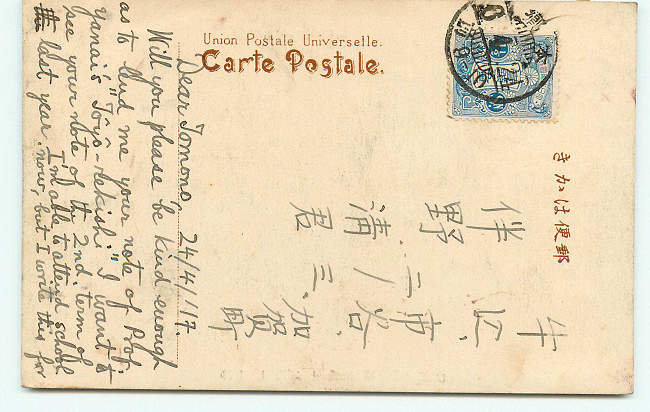 Union Postale Universelle.
Carte Postale.
きかは便郵
牛込、市谷、加賀町
二ノ三、
伴野清君
Dear Tomono, 24/4/'17.
Will you please be kind enough
as to lend me your note of Prof.
Yanai's "Tôyô-Rekishi." I want to
see your note of the 2nd. term of
last year.
I'm able to attend school
now, but I write this for